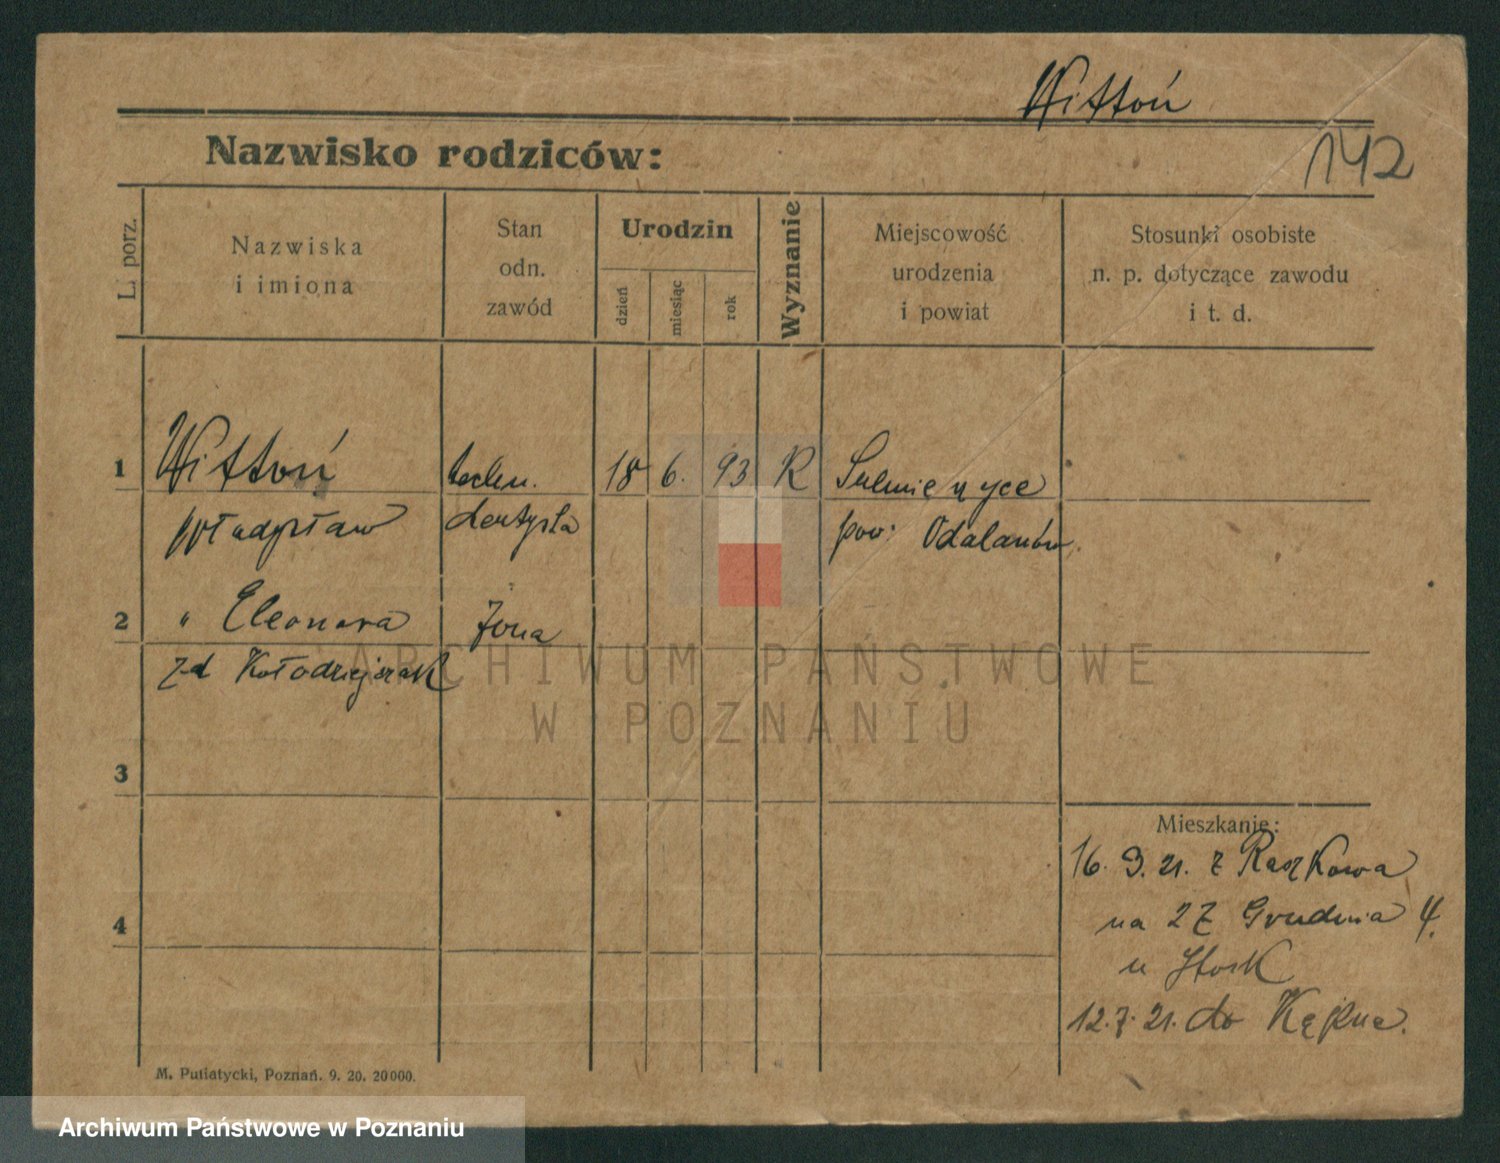 Wittoń
142
Nazwisko rodziców:
L. porz.
Nazwiska
i imiona
Stan
odn.
zawód
Urodzin
dzień
miesiąc
rok
Wyznanie
Miejscowość
urodzenia
i powiat
Stosunki osobiste
n. p. dotyczące zawodu
i t. d.
1 Wittoń techn. 18 6. 93 R Sulmierzyce
Władysław dentysta pow: Odolanów
2 " Eleonora żona
zd Kołodziejczak
3
Mieszkanie:
16. 3. 21. z Raszkowa
na 27 Grudnia 4.
4
u
12.7.21. do Kępna.
M. Putiatycki, Poznań. 9. 20. 20000.
ARCHIWUM PAŃSTWOWE
W POZNANIU
Archiwum Państwowe w Poznaniu